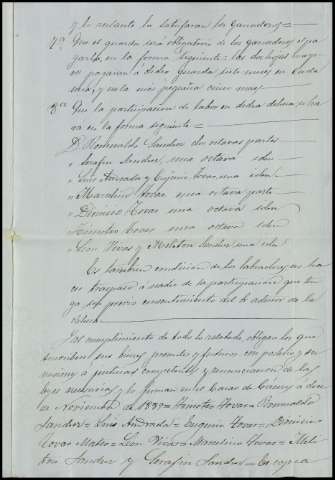 y lo restante la satisfaran los Ganaderos
7ª Que el guarda será obligatorio de los Ganaderos el pa
garlo en la forma siguiente: las dos hojas mayo
res pagaran a dicho Guarda siete meses en cada
una, y en la mas pequeña cinco meses
8ª Que la participacion de labor en dicha dehesa se ha
ra en la forma siguiente
D. Romualdo Sandin dos octavas partes
" Serafin Sandin, una octava idem
" Luis Andrada y Eugenio Tovar, una idem
" Marcelino Tovar una octava parte
" Dionisio Tovar una octava idem
" Timoteo Tovar una octava idem
" Leon Vivas y Meliton Sandin, una idem
Es tambien condicion de los labradores, no ha
cer traspaso a nadie de la participacion que ten
ga, sin previo consentimiento del Sr. dueño de la
dehesa
Al cumplimiento de todo lo relatado obligan los que
suscriben sus bienes presentes y futuros con poderio y su
mision a justicias competentes y renunciacion de las
leyes necesarias y lo firman en las Casas de a doce
de Noviembre de 1889 = Timoteo Tovar = Romualdo
Sandin = Luis Andrada = Eugenio Tovar = Dionisio
Tovar Mateos = Leon Vivas = Marcelino Tovar = Meli
ton Sandin y Serafin Sandin = Es copia